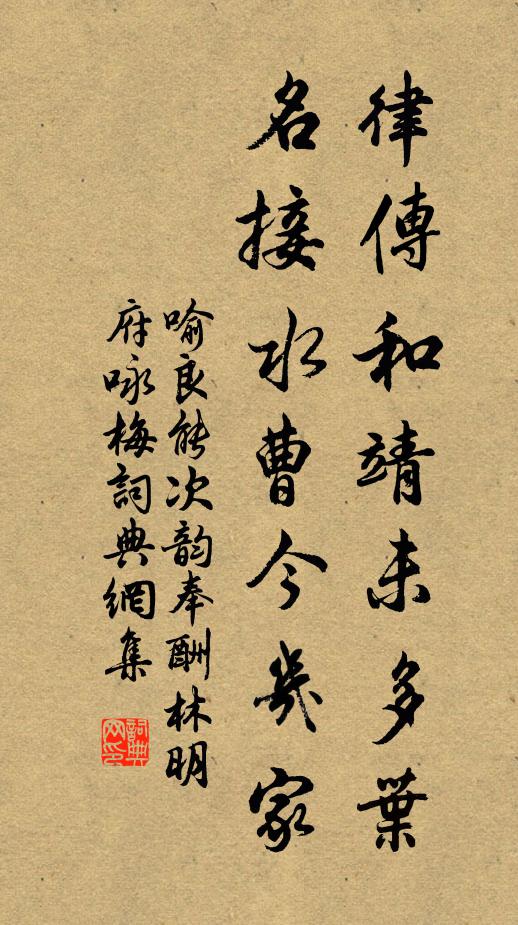 律傳和靖未多葉
名接水曹今幾家
喻良能次韵奉酬林明
府咏梅詞典網集
詞典
网印